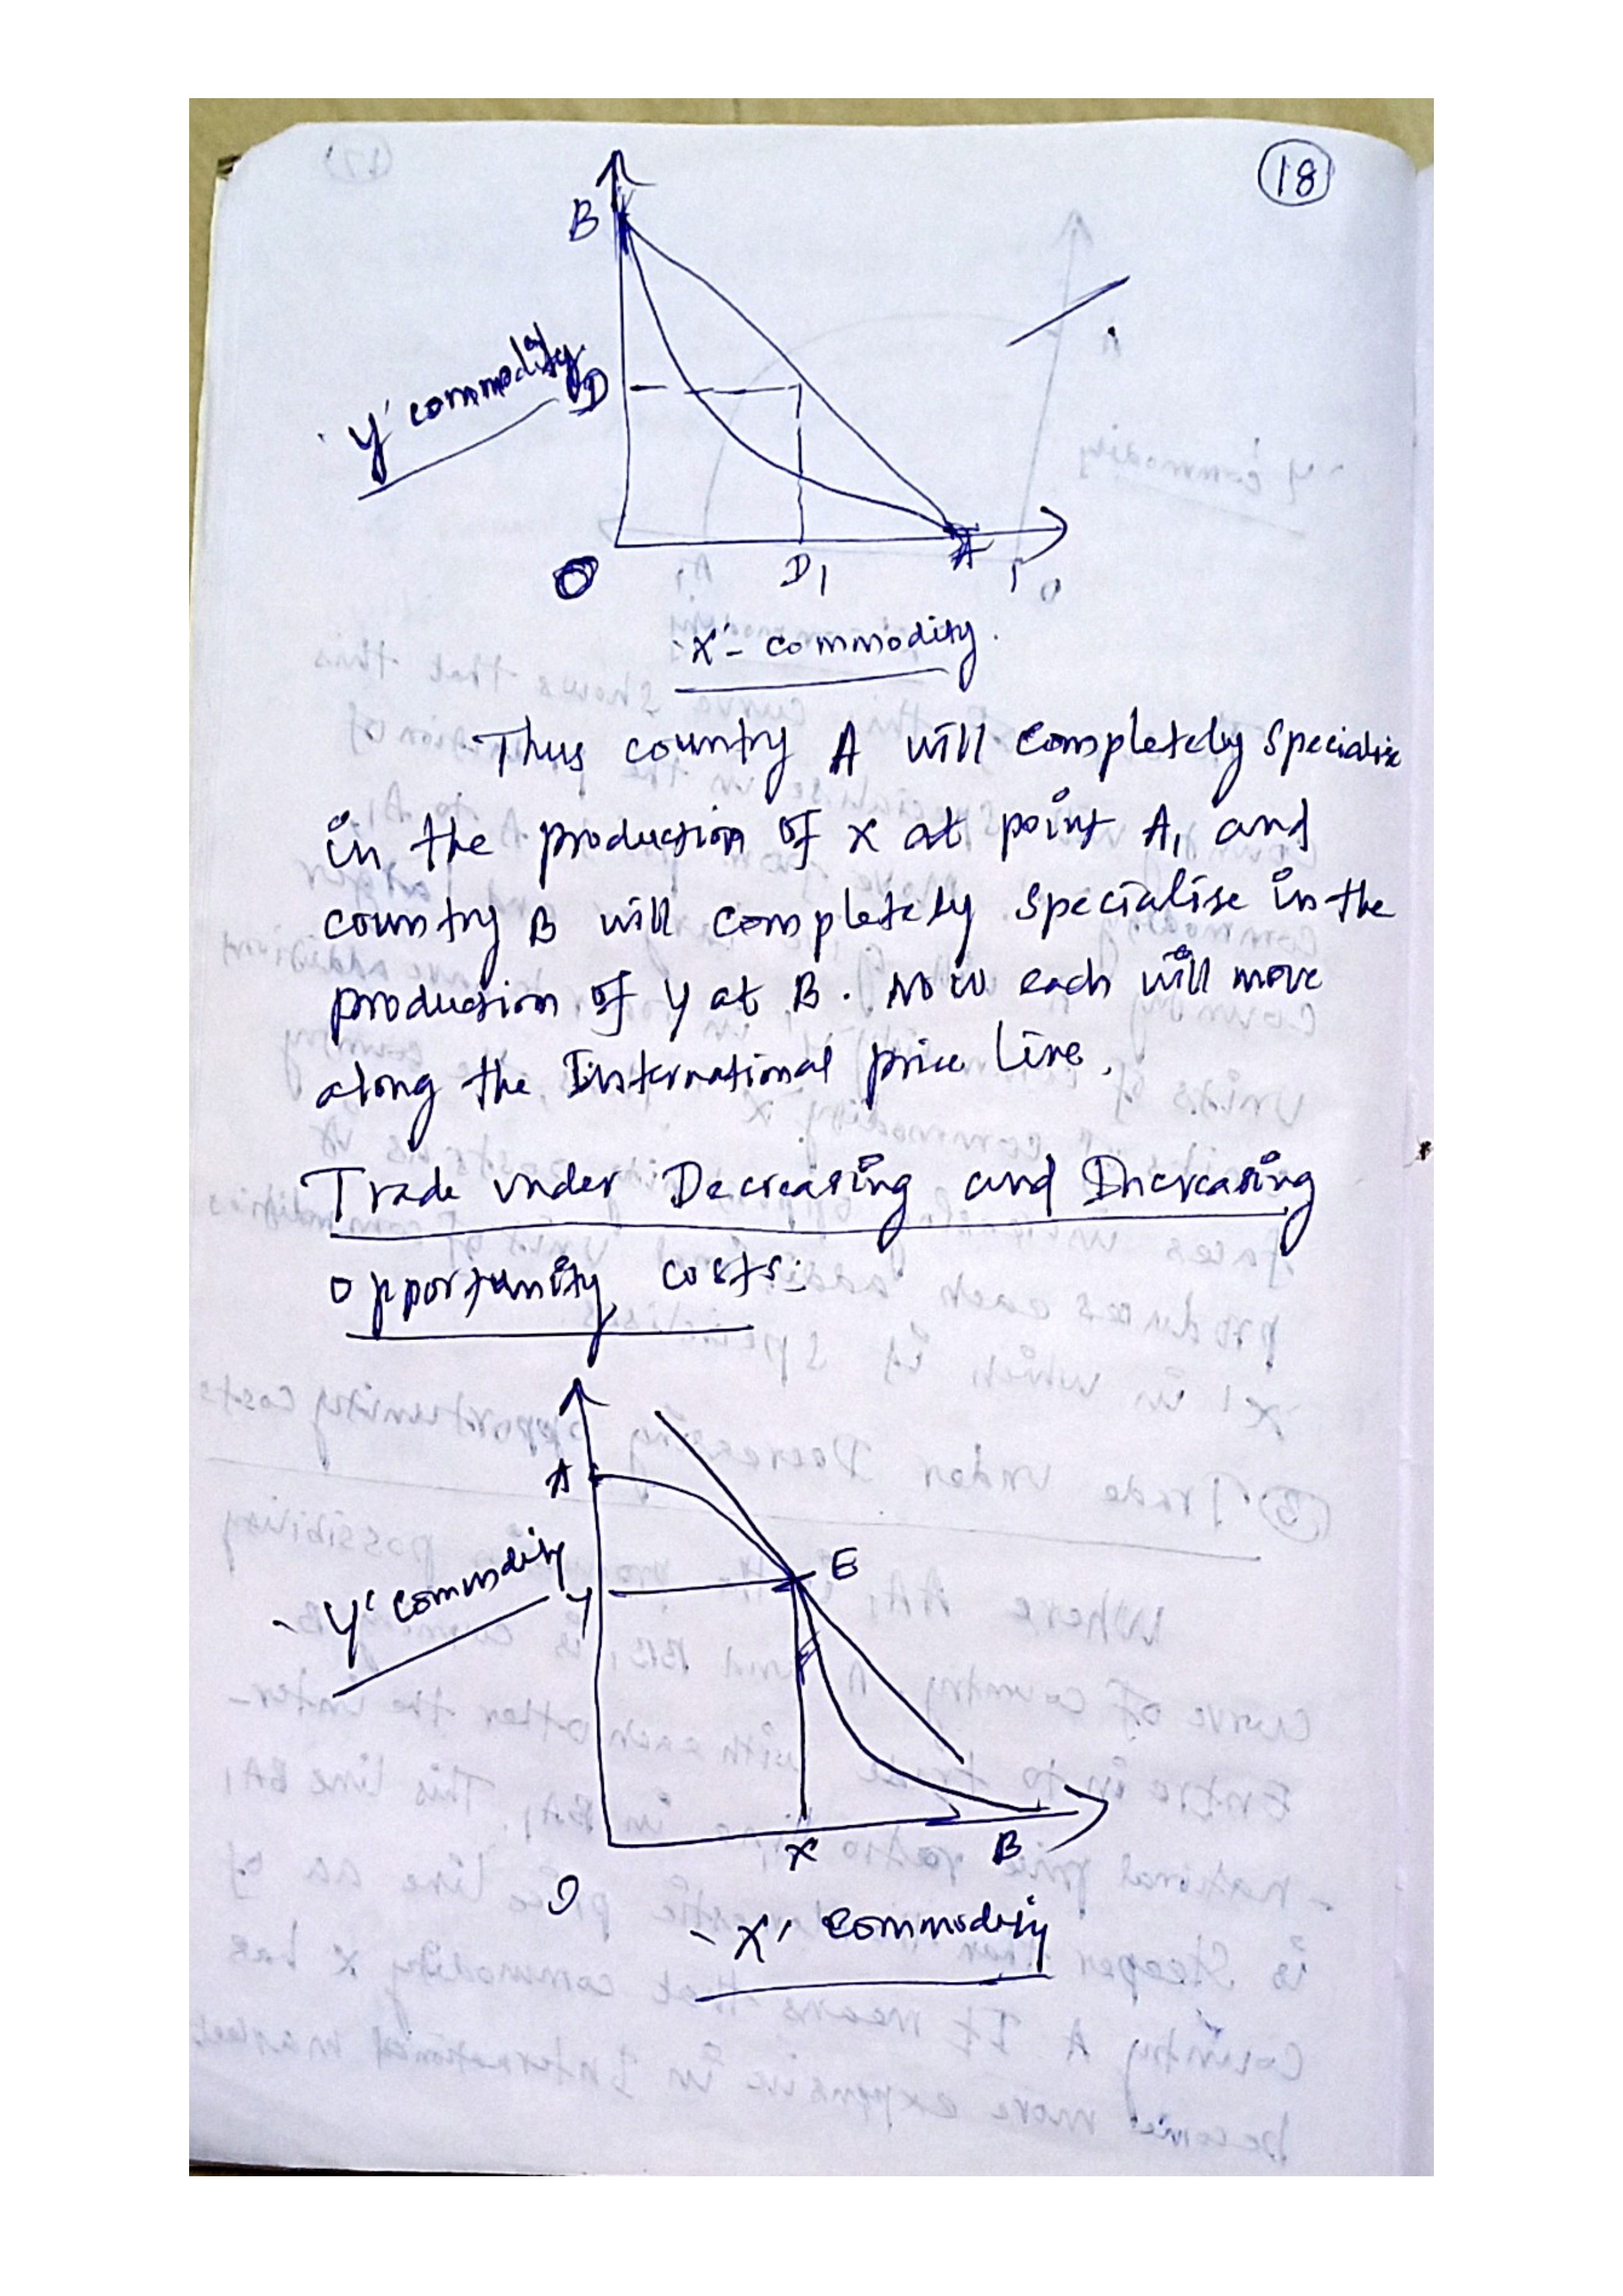 18
B
'Y' commodity
D
O
D1
A
'X'- commodity.
Thus country A will completely specialise
in the production of X at point A, and
country B will completely specialise in the
production of Y at B. Now each will move
along the International price line.
Trade under Decreasing and Increasing
opportunity costs:
A
E
'Y' commodity
Y
X
B
O
'X' commodity